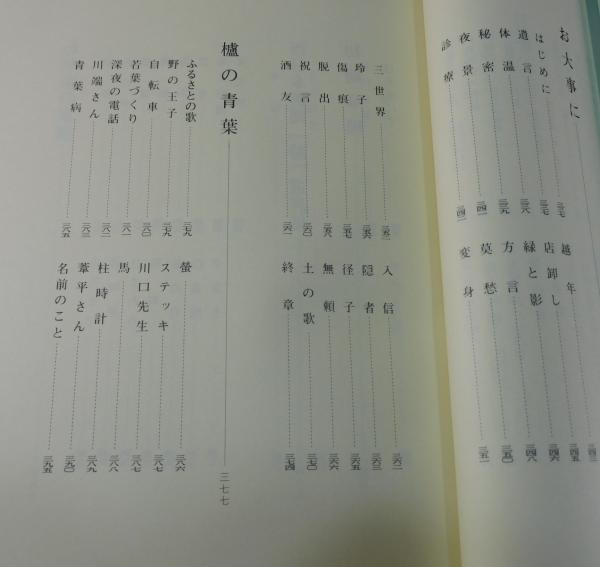 お大事に
はじめに 三三七
遺言 三三七
体温 三三八
秘密 三三九
夜景 三四一
診療 三四一
越年 三四三
店卸し 三四五
緑と影 三四六
方言 三四八
莫愁 三五〇
変身 三五一
三世界 三五三
玲子 三五六
傷痕 三五七
脱出 三五八
祝言 三六〇
酒友 三六一
入信 三六二
隠者 三六三
径子 三六五
無頼 三六六
土の歌 三七〇
終章 三七四
櫨の青葉 三七七
ふるさとの歌 三七九
野の王子 三七九
自転車 三八〇
若葉づくり 三八一
深夜の電話 三八二
川端さん 三八三
青葉病 三八五
螢 三八六
ステッキ 三八七
川口先生 三八七
馬 三八八
柱時計 三八九
葦平さん 三九〇
名前のこと 三九五